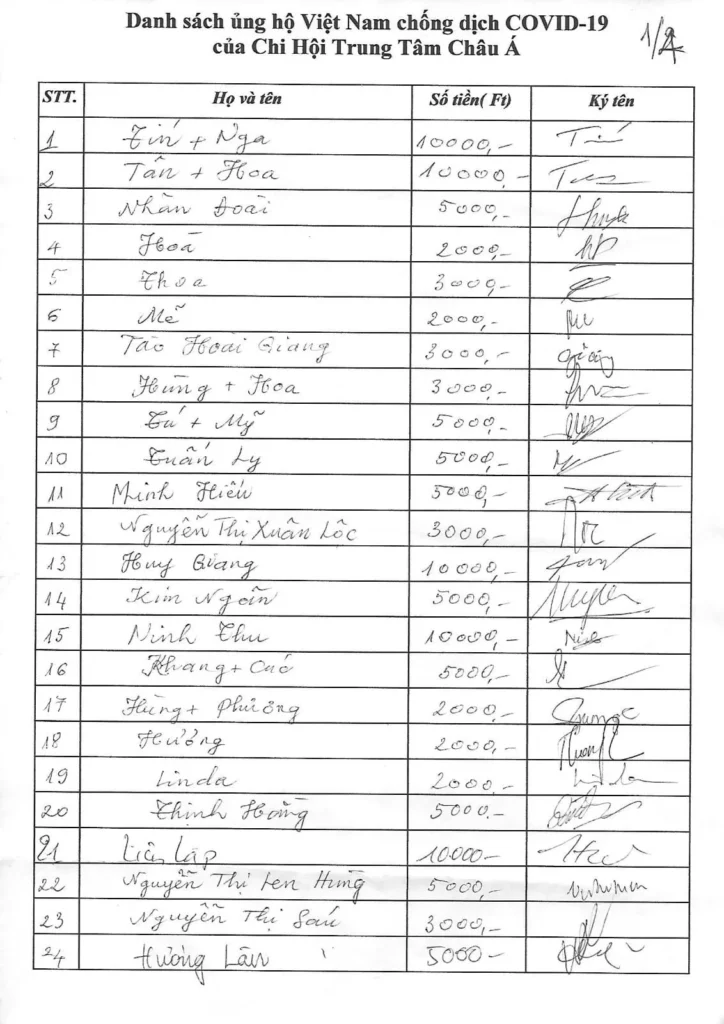 Danh sách ủng hộ Việt Nam chống dịch COVID-19
của Chi Hội Trung Tâm Châu Á
STT. Họ và tên Số tiền( Ft) Ký tên
1 Tín + Nga 10000,-
2 Tân + Hoa 10000,-
3 Nhàn Đoài 5000,-
4 Hoá 2000,-
5 Thoa 3000,-
6 Mễ 2000,-
7 Tào Hoài Giang 3000,-
8 Hùng + Hoa 3000,-
9 Tú + Mỹ 5000,-
10 Tuấn Ly 5000,-
11 Minh Hiếu 5000,-
12 Nguyễn Thị Xuân Lộc 3000,-
13 Huy Giang 10000,-
14 Kim Ngân 5000,-
15 Ninh Thu 10000,-
16 Khang + Cúc 5000,-
17 Hùng + Phương 2000,-
18 Hường 2000,-
19 Linda 2000,-
20 Thịnh Hồng 5000,-
21 Liên Lập 10000-
22 Nguyễn Thị Len Hùng 5000,-
23 Nguyễn Thị Sáu 3000,-
24 Hương Lân 5000-